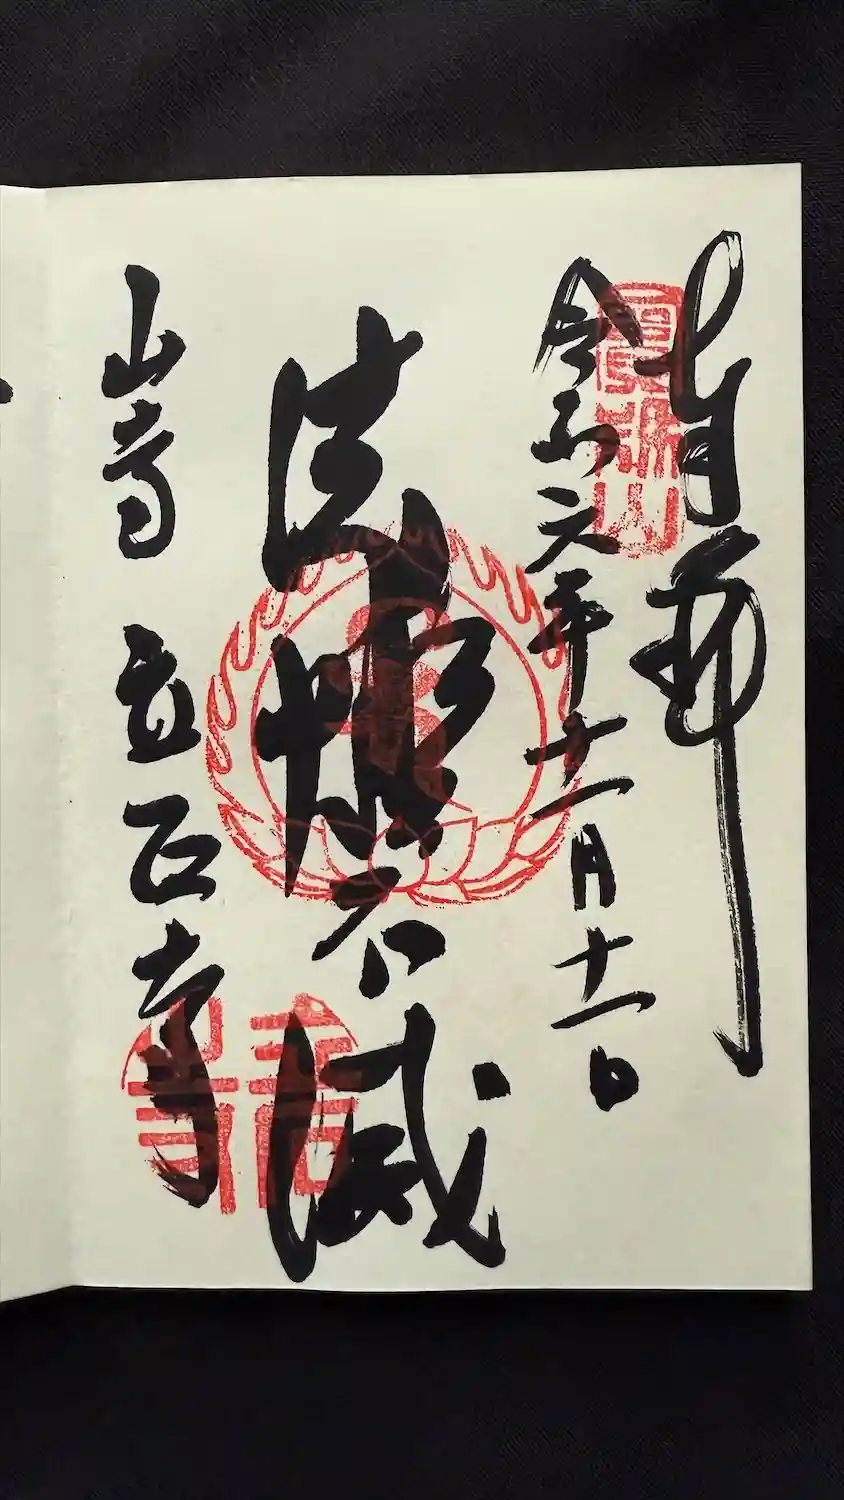 奉拝
寳珠山
令和六年十一月十一日
法燈不滅
山寺 立石寺